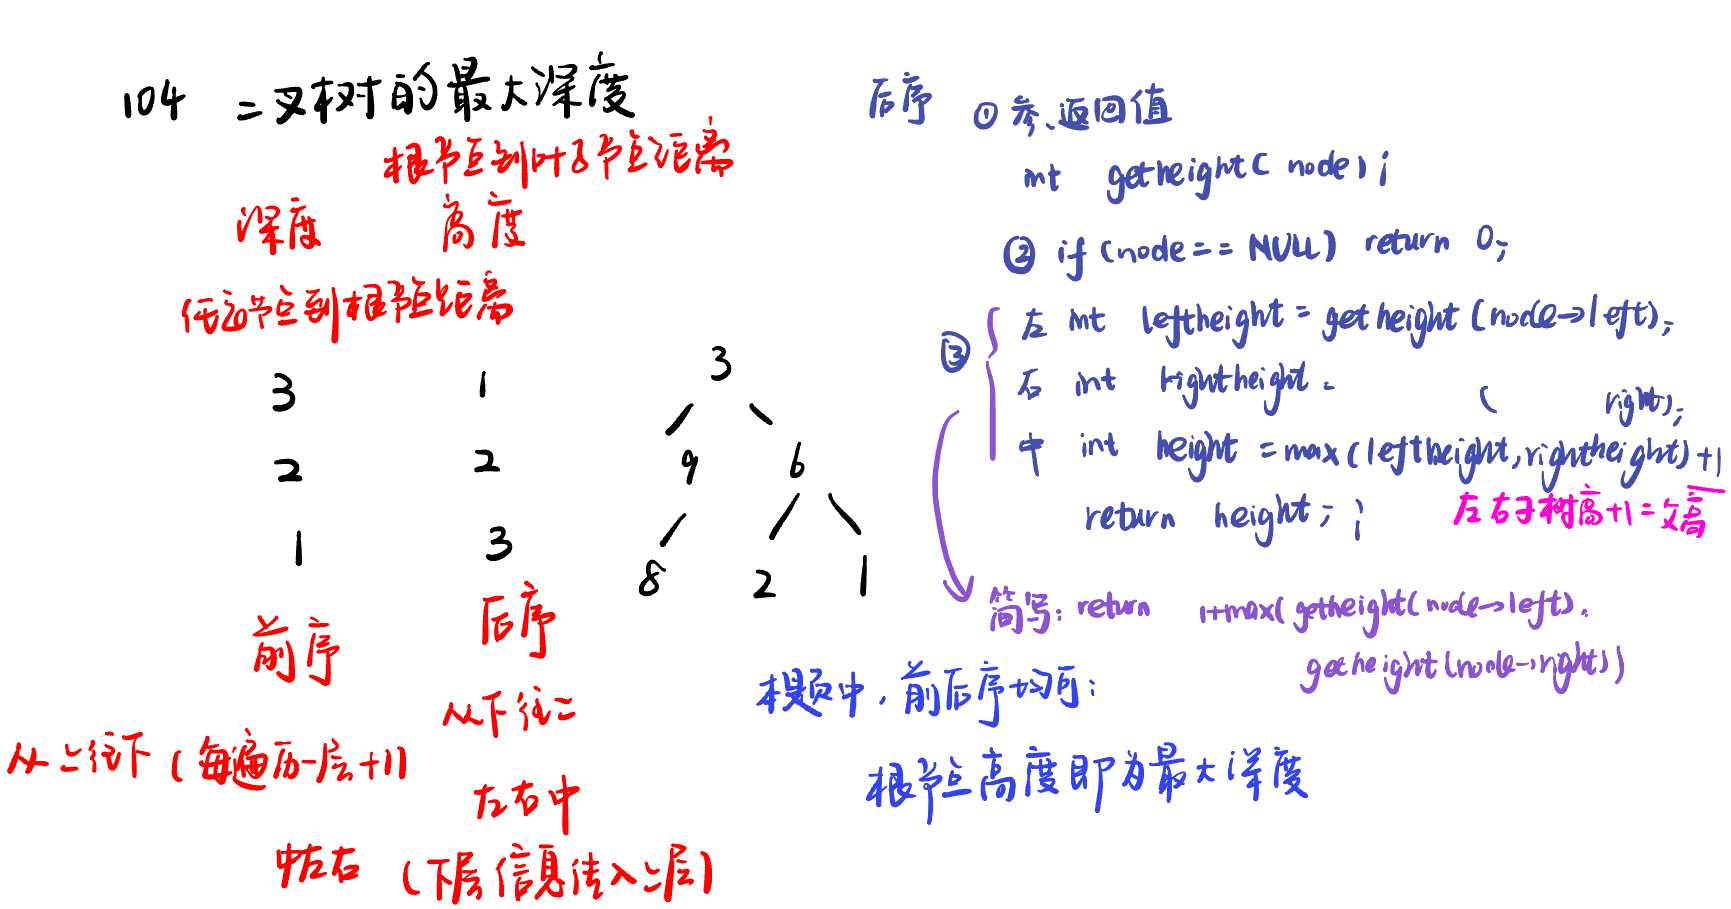 104 二叉树的最大深度
根节点到叶子节点距离
深度 高度
任意节点到根节点距离
3 1
2 2
1 3
前序 后序
从下往上
从上往下（每遍历一层+1）
左右中
中左右 （下层信息传入上层）
3
9 6
8 2 1
后序 ① 参、返回值
int getheight( node);
② if (node == NULL) return 0;
③ 左 int leftheight = getheight (node->left);
右 int rightheight = ( right);
中 int height = max(leftheight, rightheight) +1
return height; ;
左右子树高+1=父高
简写: return 1+max( getheight(node->left),
getheight(node->right))
本题中，前后序均可：
根节点高度即为最大深度